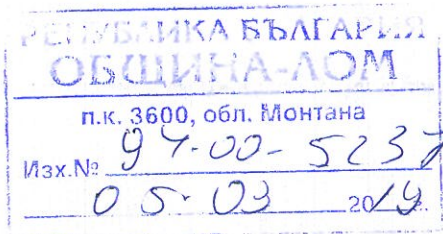 РЕПУБЛИКА БЪЛГАРИЯ
ОБЩИНА-ЛОМ
п.к. 3600, обл. Монтана
Изх.№ 94-00-5237
05.03 2019 г.